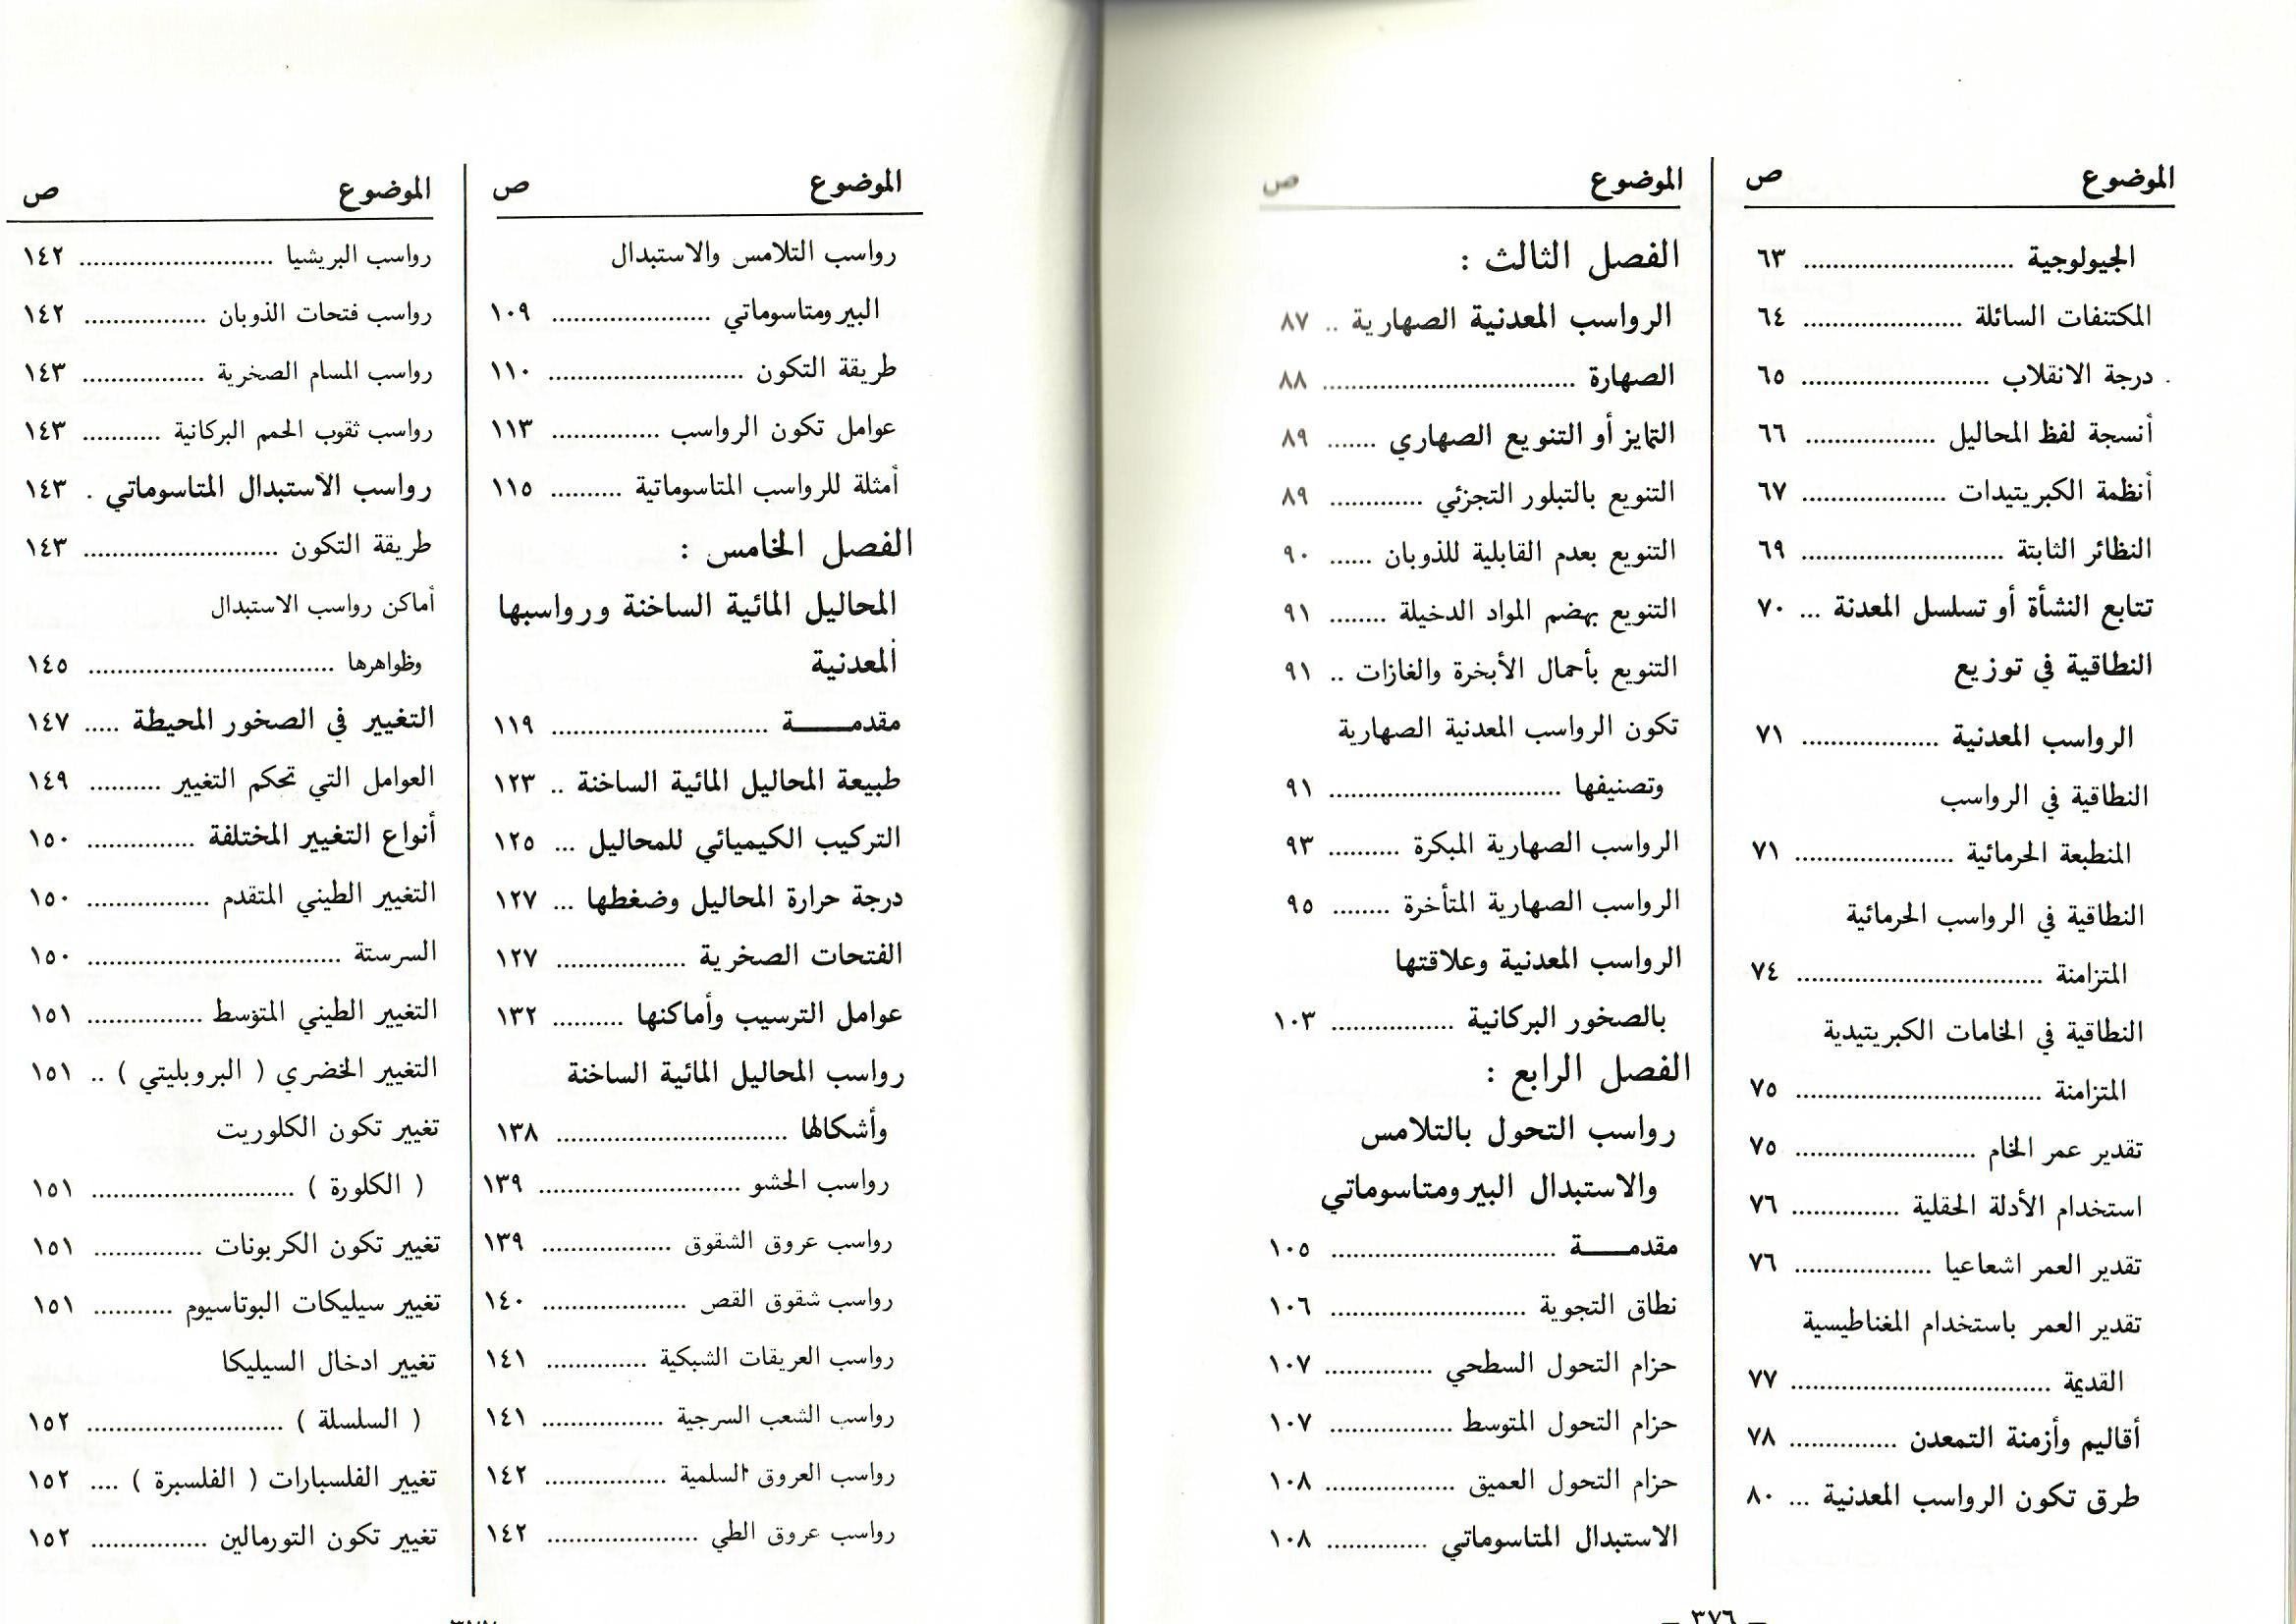 الموضوع ص
الجيولوجية ............................ ٦٣
المكتنفات السائلة ..................... ٦٤
درجة الانقلاب ......................... ٦٥
أنسجة لفظ المحاليل .................. ٦٦
أنظمة الكبريتيدات .................... ٦٧
النظائر الثابتة ........................... ٦٩
تتابع النشأة أو تسلسل المعدنة ... ٧٠
النطاقية في توزيع
الرواسب المعدنية ................... ٧١
النطاقية في الرواسب
المنطبعة الحرمائية ..................... ٧١
النطاقية في الرواسب الحرمائية
المتزامنة ................................. ٧٤
النطاقية في الخامات الكبريتيدية
المتزامنة ................................. ٧٥
تقدير عمر الخام ........................ ٧٥
استخدام الأدلة الحقلية ............... ٧٦
تقدير العمر اشعاعيا ................... ٧٦
تقدير العمر باستخدام المغناطيسية
القديمة ................................... ٧٧
أقاليم وأزمنة التمعدن ............... ٧٨
طرق تكون الرواسب المعدنية ... ٨٠
الموضوع ص
الفصل الثالث :
الرواسب المعدنية الصهارية .. ٨٧
الصهارة .................................. ٨٨
التمايز أو التنويع الصهاري ....... ٨٩
التنويع بالتبلور التجزئي ............. ٨٩
التنويع بعدم القابلية للذوبان ...... ٩٠
التنويع بهضم المواد الدخيلة ........ ٩١
التنويع بأحمال الأبخرة والغازات .. ٩١
تكون الرواسب المعدنية الصهارية
وتصنيفها ................................ ٩١
الرواسب الصهارية المبكرة .......... ٩٣
الرواسب الصهارية المتأخرة ........ ٩٥
الرواسب المعدنية وعلاقتها
بالصخور البركانية ................. ١٠٣
الفصل الرابع :
رواسب التحول بالتلامس
والاستبدال البيرومتاسوماتي
مقدمـــــة ............................... ١٠٥
نطاق التجوية .......................... ١٠٦
حزام التحول السطحي ............... ١٠٧
حزام التحول المتوسط ................. ١٠٧
حزام التحول العميق .................. ١٠٨
الاستبدال المتاسوماتي .............. ١٠٨
— ٣٧٦ —
الموضوع ص
رواسب التلامس والاستبدال
البيرومتاسوماتي ...................... ١٠٩
طريقة التكون ........................... ١١٠
عوامل تكون الرواسب ............... ١١٣
أمثلة للرواسب المتاسوماتية .......... ١١٥
الفصل الخامس :
المحاليل المائية الساخنة ورواسبها
المعدنية
مقدمـــــة .............................. ١١٩
طبيعة المحاليل المائية الساخنة .. ١٢٣
التركيب الكيميائي للمحاليل ... ١٢٥
درجة حرارة المحاليل وضغطها ... ١٢٧
الفتحات الصخرية .................. ١٢٧
عوامل الترسيب وأماكنها .......... ١٣٢
رواسب المحاليل المائية الساخنة
وأشكالها ................................ ١٣٨
رواسب الحشو ............................ ١٣٩
رواسب عروق الشقوق .................. ١٣٩
رواسب شقوق القص .................... ١٤٠
رواسب العريقات الشبكية .............. ١٤١
رواسب الشعب السرجية ................. ١٤١
رواسب العروق السلمية ................. ١٤٢
رواسب عروق الطي ..................... ١٤٢
الموضوع ص
رواسب البريشيا ........................... ١٤٢
رواسب فتحات الذوبان ................. ١٤٢
رواسب المسام الصخرية ................. ١٤٣
رواسب ثقوب الحمم البركانية ........... ١٤٣
رواسب الاستبدال المتاسوماتي . ١٤٣
طريقة التكون ........................... ١٤٣
أماكن رواسب الاستبدال
وظواهرها .................................. ١٤٥
التغيير في الصخور المحيطة ..... ١٤٧
العوامل التي تحكم التغيير .......... ١٤٩
أنواع التغيير المختلفة ............... ١٥٠
التغيير الطيني المتقدم ................. ١٥٠
السرستة ................................... ١٥٠
التغيير الطيني المتوسط ................ ١٥١
التغيير الخضري ( البروبليتي ) .. ١٥١
تغيير تكون الكلوريت
( الكلورة ) ............................ ١٥١
تغيير تكون الكربونات ............... ١٥١
تغيير سيليكات البوتاسيوم ........... ١٥١
تغيير ادخال السيليكا
( السلسلة ) ........................... ١٥٢
تغيير الفلسبارات ( الفلسبرة ) .... ١٥٢
تغيير تكون التورمالين ................ ١٥٢